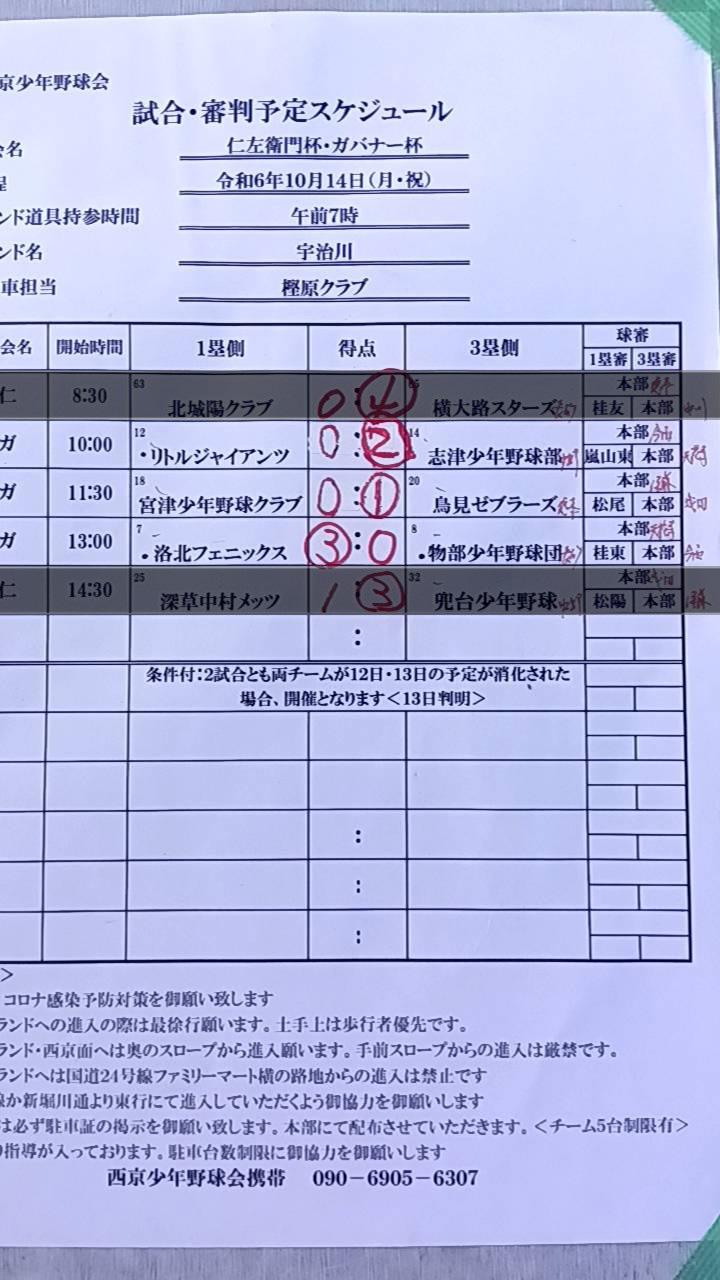 京少年野球会
試合・審判予定スケジュール
会名 仁左衛門杯・ガバナー杯
程 令和6年10月14日(月・祝)
ンド道具持参時間 午前7時
ンド名 宇治川
車担当 樫原クラブ
会名 開始時間 1塁側 得点 3塁側 球審
1塁審 3塁審
仁 8:30 63 北城陽クラブ 0 : 4 65 横大路スターズ 本部
桂友 本部
ガ 10:00 12 ・リトルジャイアンツ 0 : 2 14 志津少年野球部 本部
嵐山東 本部
ガ 11:30 18 宮津少年野球クラブ 0 : 1 20 鳥見ゼブラーズ 本部
松尾 本部
ガ 13:00 7 ・洛北フェニックス 3 : 0 8 ・物部少年野球団 本部
桂東 本部
仁 14:30 25 深草中村メッツ 1 3 32 兜台少年野球 本部
松陽 本部
:
条件付:2試合とも両チームが12日・13日の予定が消化された
場合、開催となります<13日判明>
:
:
:
>
コロナ感染予防対策を御願い致します
ランドへの進入の際は最徐行願います。土手上は歩行者優先です。
ランド・西京面へは奥のスロープから進入願います。手前スロープからの進入は厳禁です。
ランドへは国道24号線ファミリーマート横の路地からの進入は禁止です
線か新堀川通より東行にて進入していただくよう御協力を御願いします
は必ず駐車証の掲示を御願い致します。本部にて配布させていただきます。<チーム5台制限有>
り指導が入っております。駐車台数制限に御協力を御願いします
西京少年野球会携帯 090-6905-6307